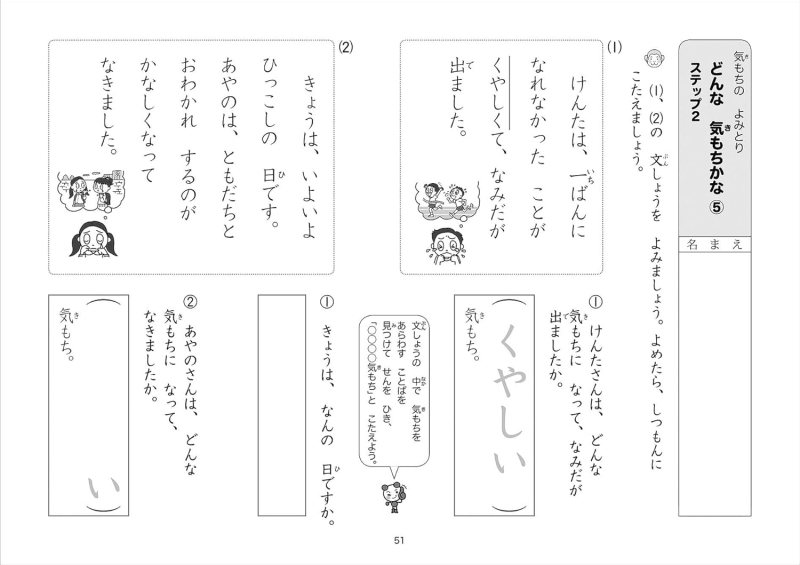 気もちの　よみとり
どんな　気もちかな⑤
ステップ2
名まえ
⑴、⑵の　文しょうを　よみましょう。よめたら、しつもんに
こたえましょう。
⑴
けんたは、一ばんに
なれなかった　ことが
くやしくて、なみだが
出ました。
① けんたさんは、どんな
気もちに　なって、なみだが
出ましたか。
（くやしい）
気もち。
文しょうの　中で　気もちを
あらわす　ことばを
見つけて　せんを　ひき、
「○○○○気もち」と　こたえよう。
⑵
きょうは、いよいよ
ひっこしの　日です。
あやのは、ともだちと
おわかれ　するのが
かなしくなって
なきました。
① きょうは、なんの　日ですか。
② あやのさんは、どんな
気もちに　なって、
なきましたか。
（　い）
気もち。
51